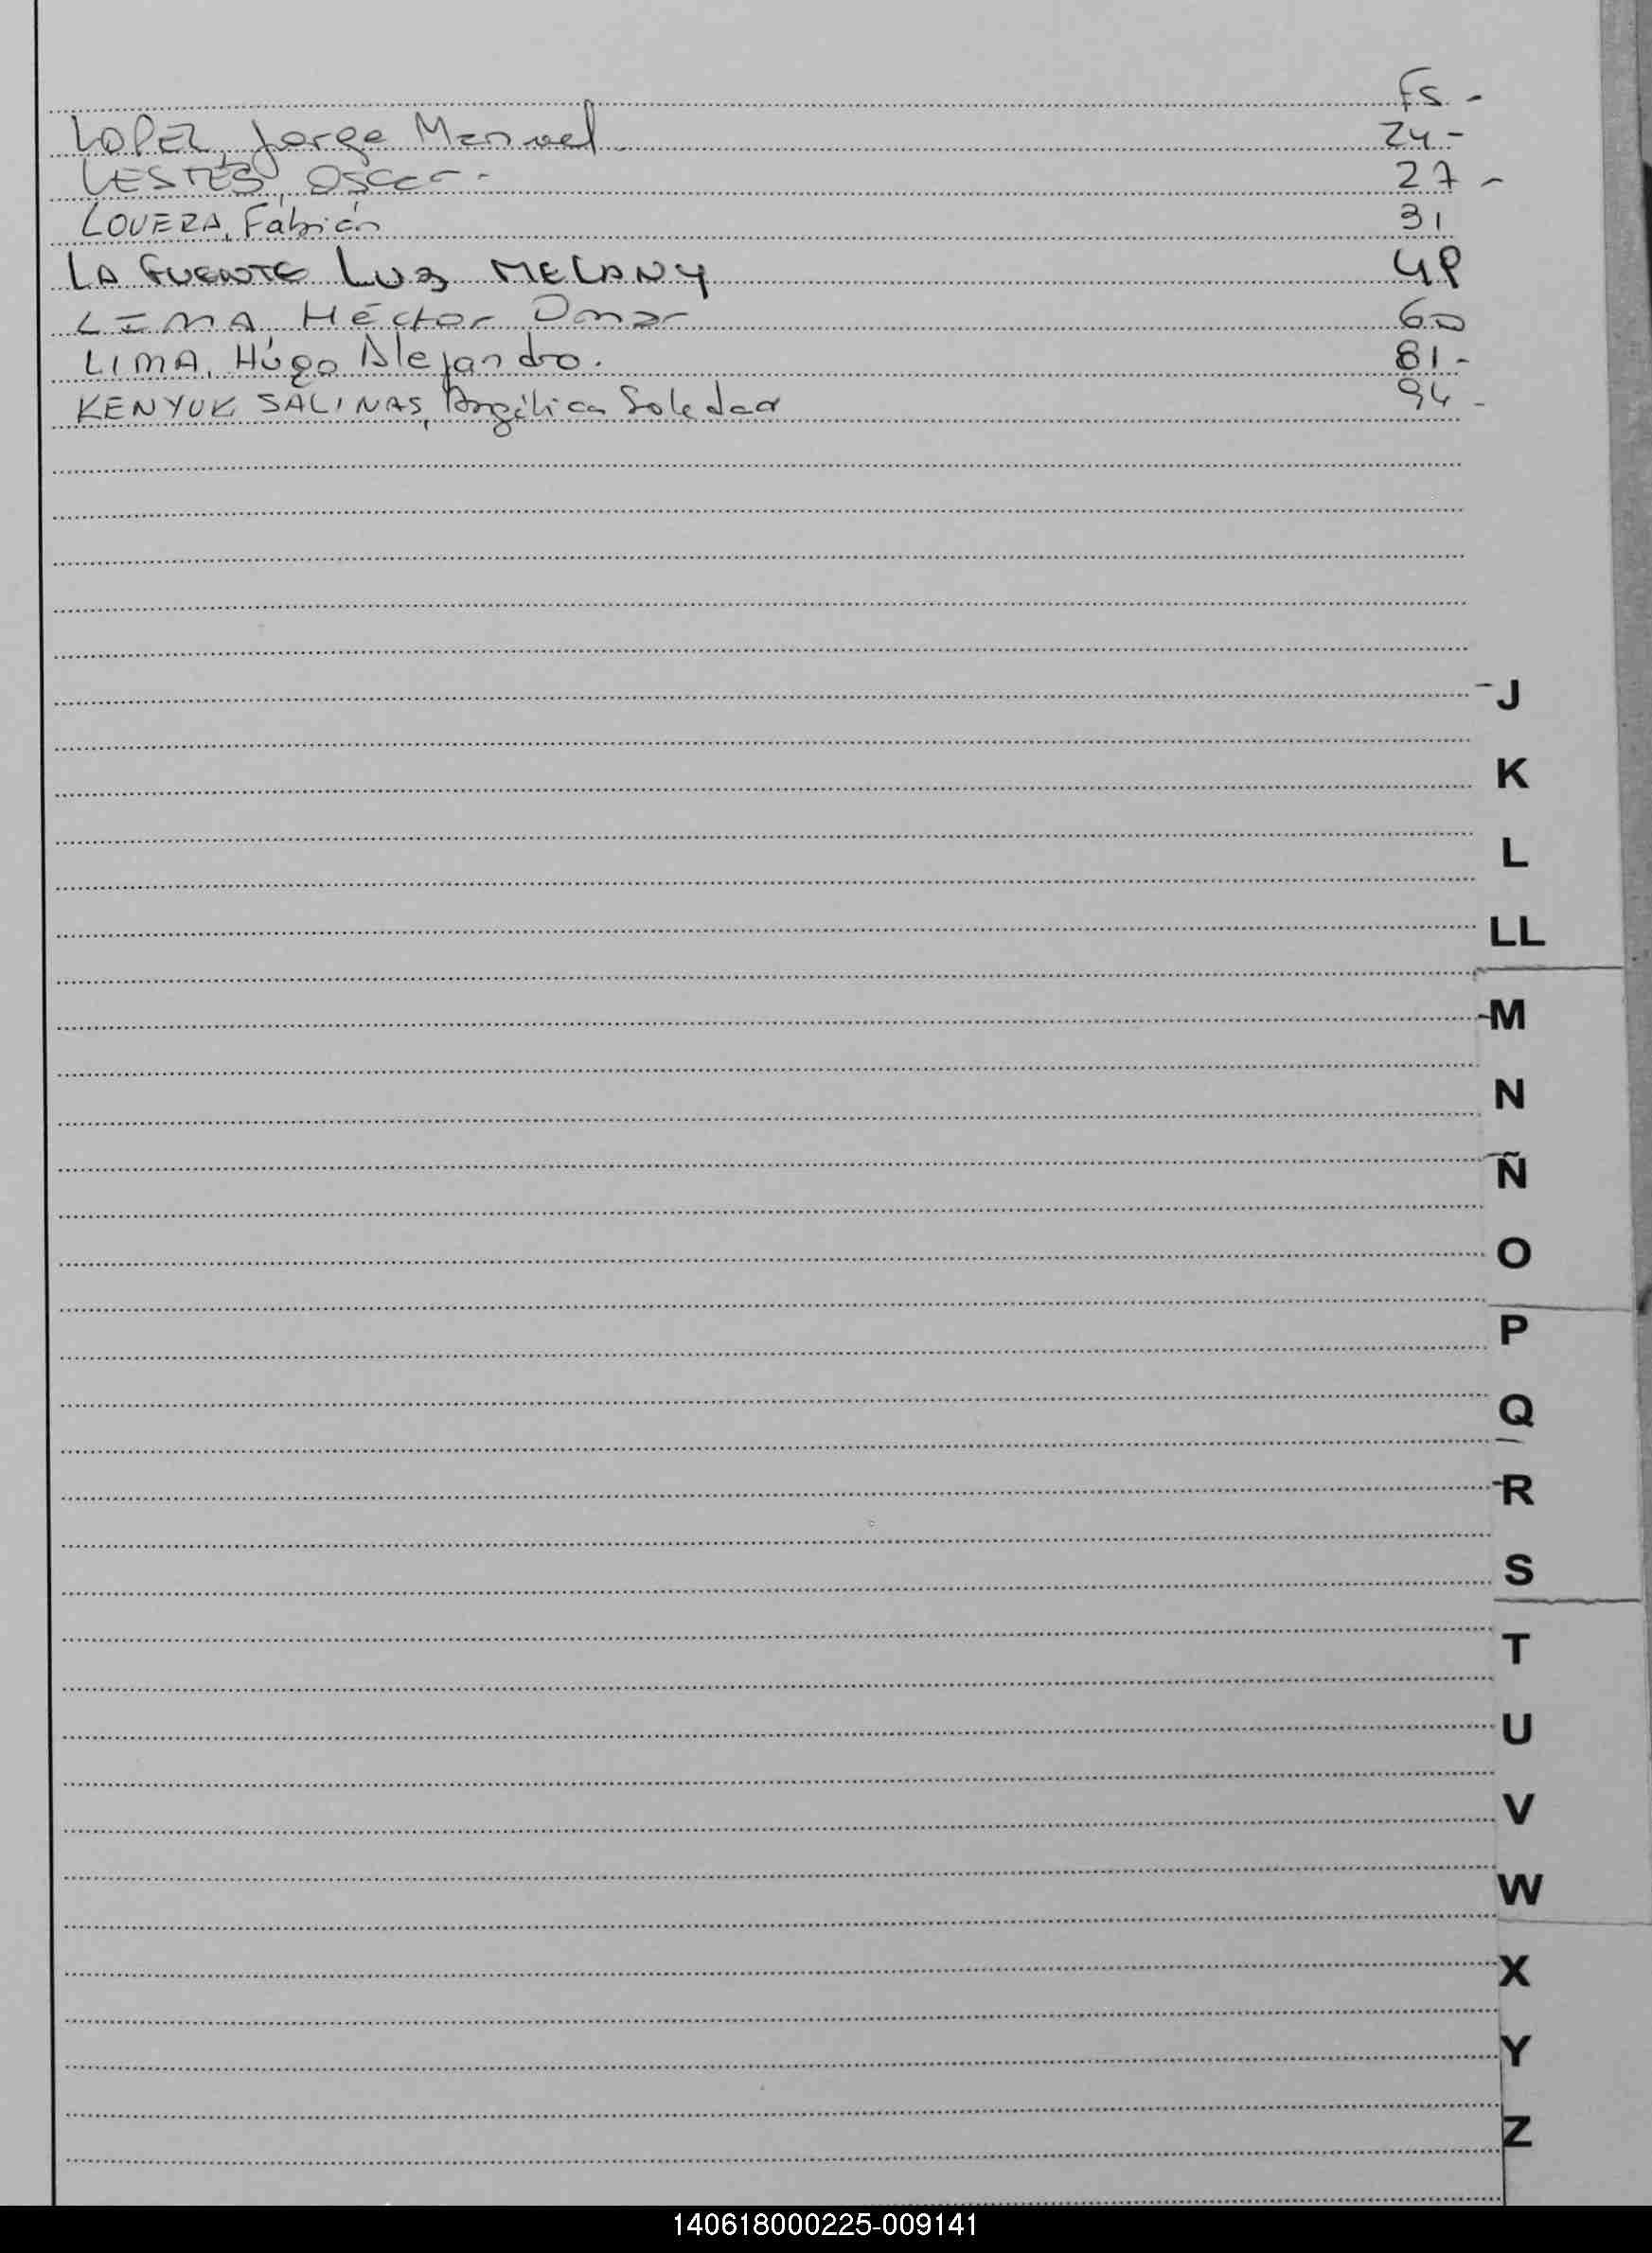 Fs. -
LOPEZ, Jorge Manuel. 24 -
LESTES, Oscar - 27 -
LOVERA, Fabián 31
LA FUENTE LUZ MELANY 48
LIMA Héctor Omar 60
LIMA, Hugo Alejandro. 81 -
KENYUK SALINAS, Angélica Soledad 94 -
J
K
L
LL
M
N
Ñ
O
P
Q
R
S
T
U
V
W
X
Y
Z
140618000225-009141